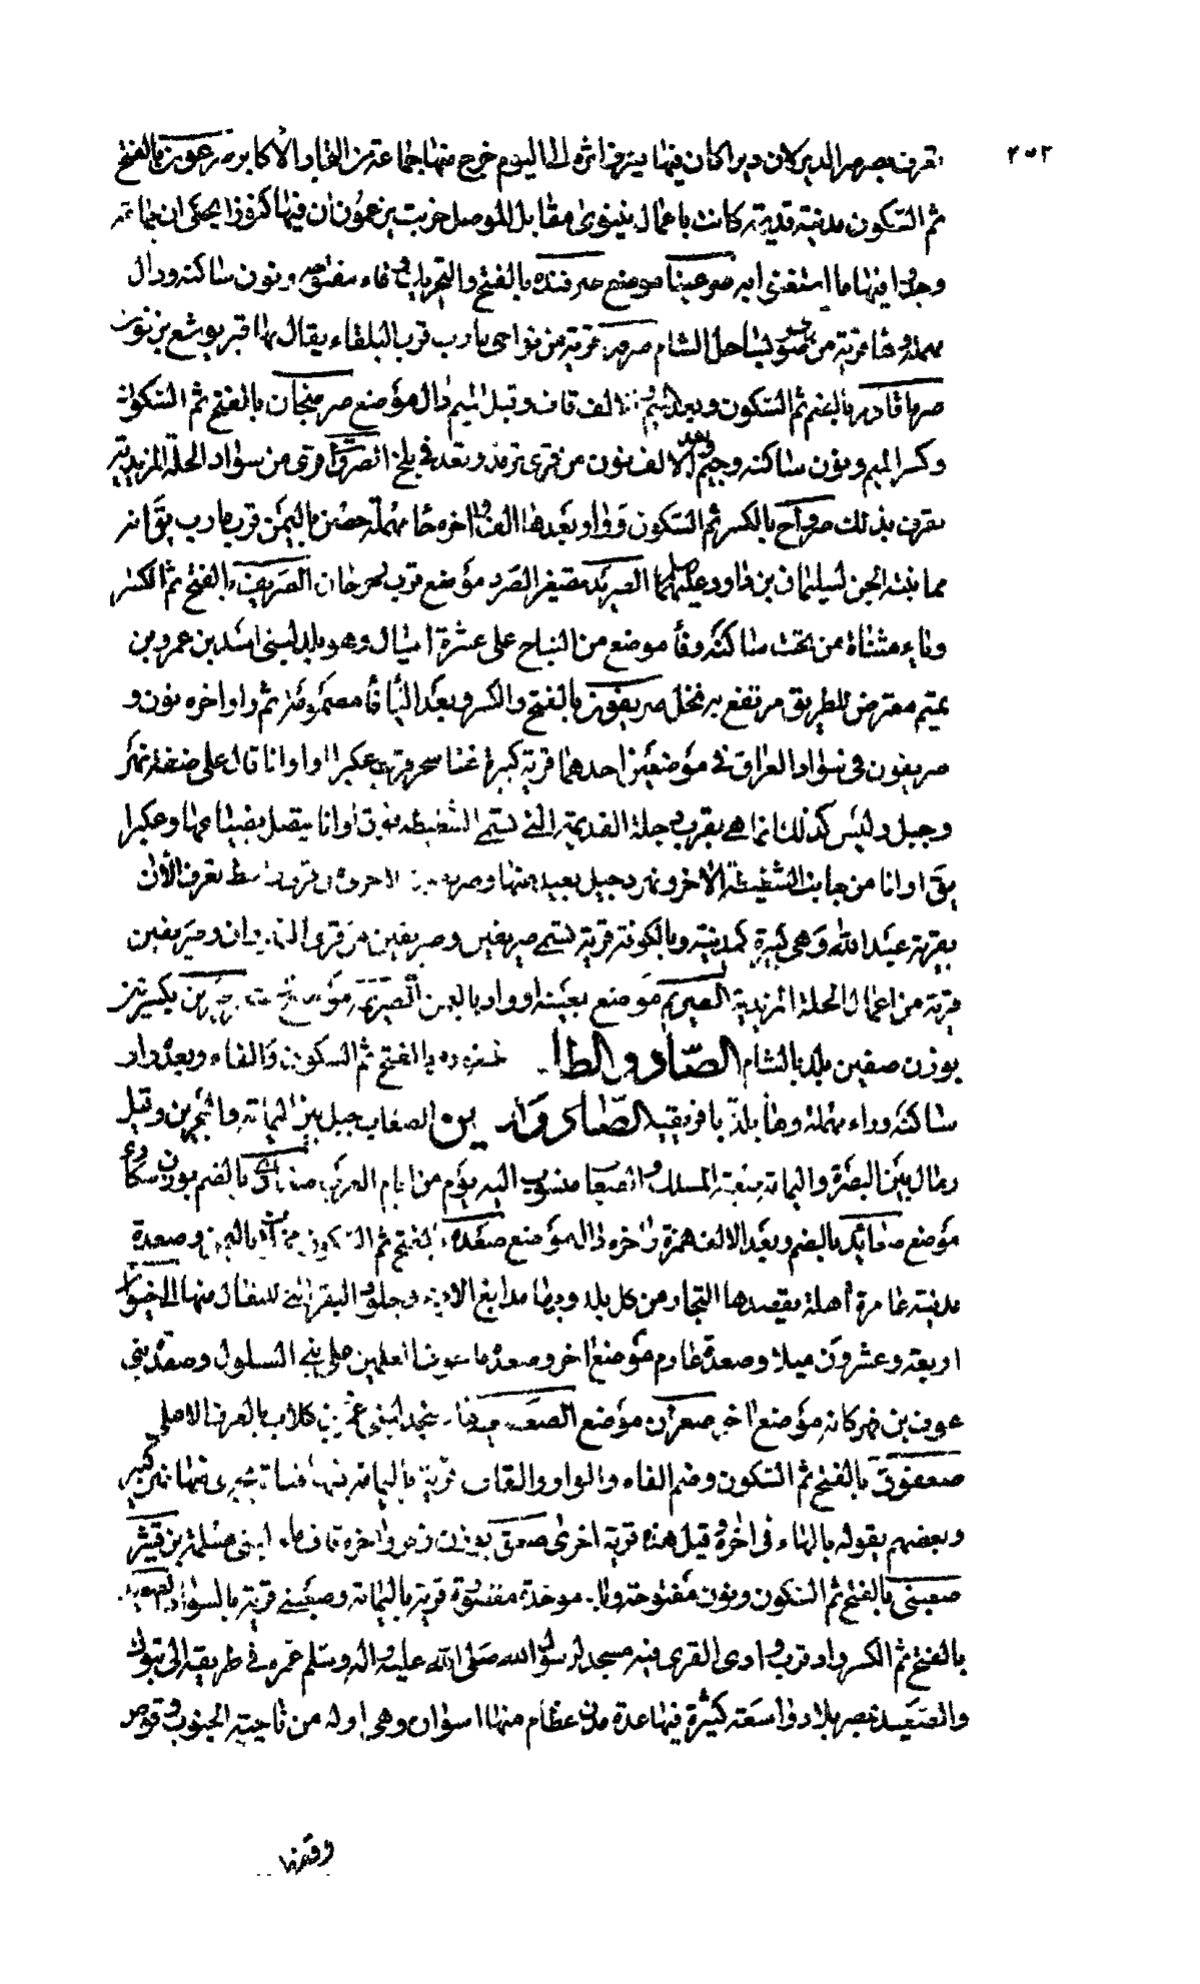 ٢٥٢
تعرف بصرصر الدير لان ديرا كان فيها بين قرواثره الى اليوم خرج منها جماعة من التجار والاكابر صرعون بالفتح
ثم السكون مدينة قديمة كانت باعمال نينوى مقابل الموصل خربت يزعمون ان فيها كنوزا يحكى ان جماعة
وجدوا فيها ما استغنى به صرعينا موضع صرفندة بالفتح والتحريك وفاء مفتوحة ونون ساكنة ودال
مهملة وها قرية من صور بساحل الشام صرفة قرية من نواحى مارب قرب البلقاء يقال بها قبر يوشع بن نون
صرماقادم بالفتح ثم السكون وبعد الميم الف قاف وقبل الميم دال موضع صرمنجان بالفتح ثم السكون
وكسر الميم ونون ساكنة وجيم وبعد الالف نون من قرى ترمذ وتعد فى بلخ الصروات قرى من سواد الحلة المزيدية
يعرف بذلك صرواح بالكسر ثم السكون وواو بعدها الف واخره حا مهملة حصن باليمن قرب مارب يقال انه
مما بنته الجن لسليمان بن داود عليهما الصريد تصغير الصرد موضع قرب رحرحان الصريف بالفتح ثم الكسر
وياء مثناة من تحت ساكنة وفا موضع من النباج على عشرة اميال وهو بلد لبنى اسد بن عمرو بن
تميم معترض للطريق مرتفع به نخل صريفون بالفتح والكسر وبعد اليا فا مضمومة ثم واو اخره نون و
صريفون فى سواد العراق فى موضعين احدهما قرية كبيرة غنا شجر قرب عكبرا واوانا قال على ضفة نهر
دجيل وليس كذلك انما هى بقرب دجلة القديمة التى تسمى الشطيطة فوق اوانا يتصل بضياعها وعكبرا
بقى اوانا من جانب الشطيطة الاخر ونهر دجيل بعيد منها وصريفين الاخرى من قرى واسط تعرف الان
بقرية عبد الله وهى كبيرة كمدينة وبالكوفة قرية تسمى صريفين وصريفين من قرى النهروان وصريفين
قرية من اعمال الحلة المزيدية الصريم موضع بعينه او واد باليمن الصريمة موضع صرين بكسرتين
بوزن صفين بلد بالشام الصاد والطا صطفورة بالفتح ثم السكون والفاء وبعد واو
ساكنة وراء مهملة وها بلد بافريقية الصاد والعين الصعاب جبل بين اليمامة والبحرين وقيل
رمال بين البصرة واليمامة صعبة المسلك والصعاب منسوب اليه يوم من ايام العرب بالضم بوزن سكارى
موضع صعائد بالضم وبعد الالف همزة واخره دال موضع صعدة بالفتح ثم السكون باليمن وصعدة
مدينة عامرة اهلة يقصدها التجار من كل بلد وبها مدابغ الادم وجلود البقر التى للنعال منها الى خيوان
اربعة وعشرون ميلا وصعدة عارم موضع اخر وصعدة ما لبنى السلول وصعد بنى
عوف بن موضع اخر صعران موضع الصعب بنجد لبنى كلاب بالعرف الاعلى
صعفوق بالفتح ثم السكون وضم الفاء والواو والقاف قرية باليمامة فيها قناة يجرى فيها نهر كبير
وبعضهم يقوله بالهاء فى اخره وقيل هذه قرية اخرى صعق بوزن زفر واخره قاف ماء لبنى سلمة بن قشير
صعنبى بالفتح ثم السكون ونون مفتوحة وبا موحدة مفتوحة قرية باليمامة وصعنبى قرية بالسواد الصعيد
بالفتح ثم الكسر واد قرب وادى القرى فيه مسجد لرسول الله صلى الله عليه واله وسلم عمره فى طريقه الى تبوك
والصعيد بمصر بلاد واسعة كثيرة فيها عدة مدن عظام منها اسوان وهى اوله من ناحية الجنوب وقوص
وقفط